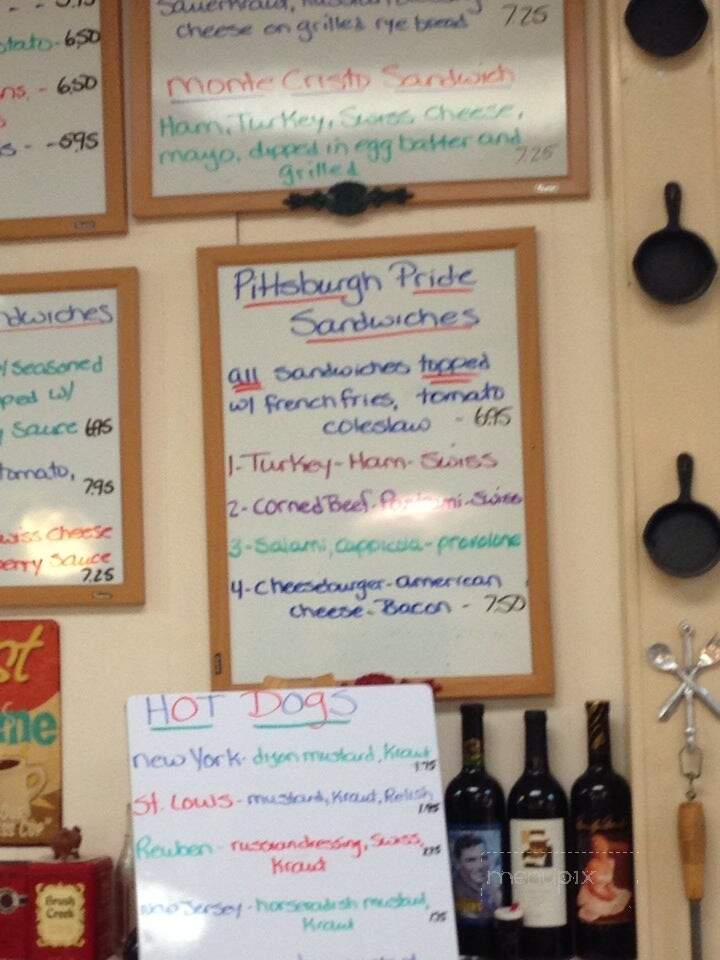 tato - 6.50
ns, - 6.50
s - - 5.95
cheese on grilled rye bread 7.25
Monte Cristo Sandwich
Ham, Turkey, Swiss Cheese,
mayo, dipped in egg batter and
grilled 7.25
dwiches
w/ seasoned
ped w/
sauce 6.95
tomato,
7.95
wiss cheese
erry sauce
7.25
Pittsburgh Pride
Sandwiches
all sandwiches topped
w/ french fries, tomato
coleslaw - 6.95
1-Turkey-Ham-Swiss
2-Corned Beef-Pastrami-Swiss
3-Salami, cappicola-provolone
4-cheeseburger-american
cheese-Bacon - 7.50
HOT DOGS
new York- dijon mustard, Kraut
1.75
St. Louis- mustard, Kraut, Relish
1.95
Reuben- russian dressing, Swiss,
Kraut
Jersey-horseradish mustard,
Kraut
st
me
Brush
Creek
menupix